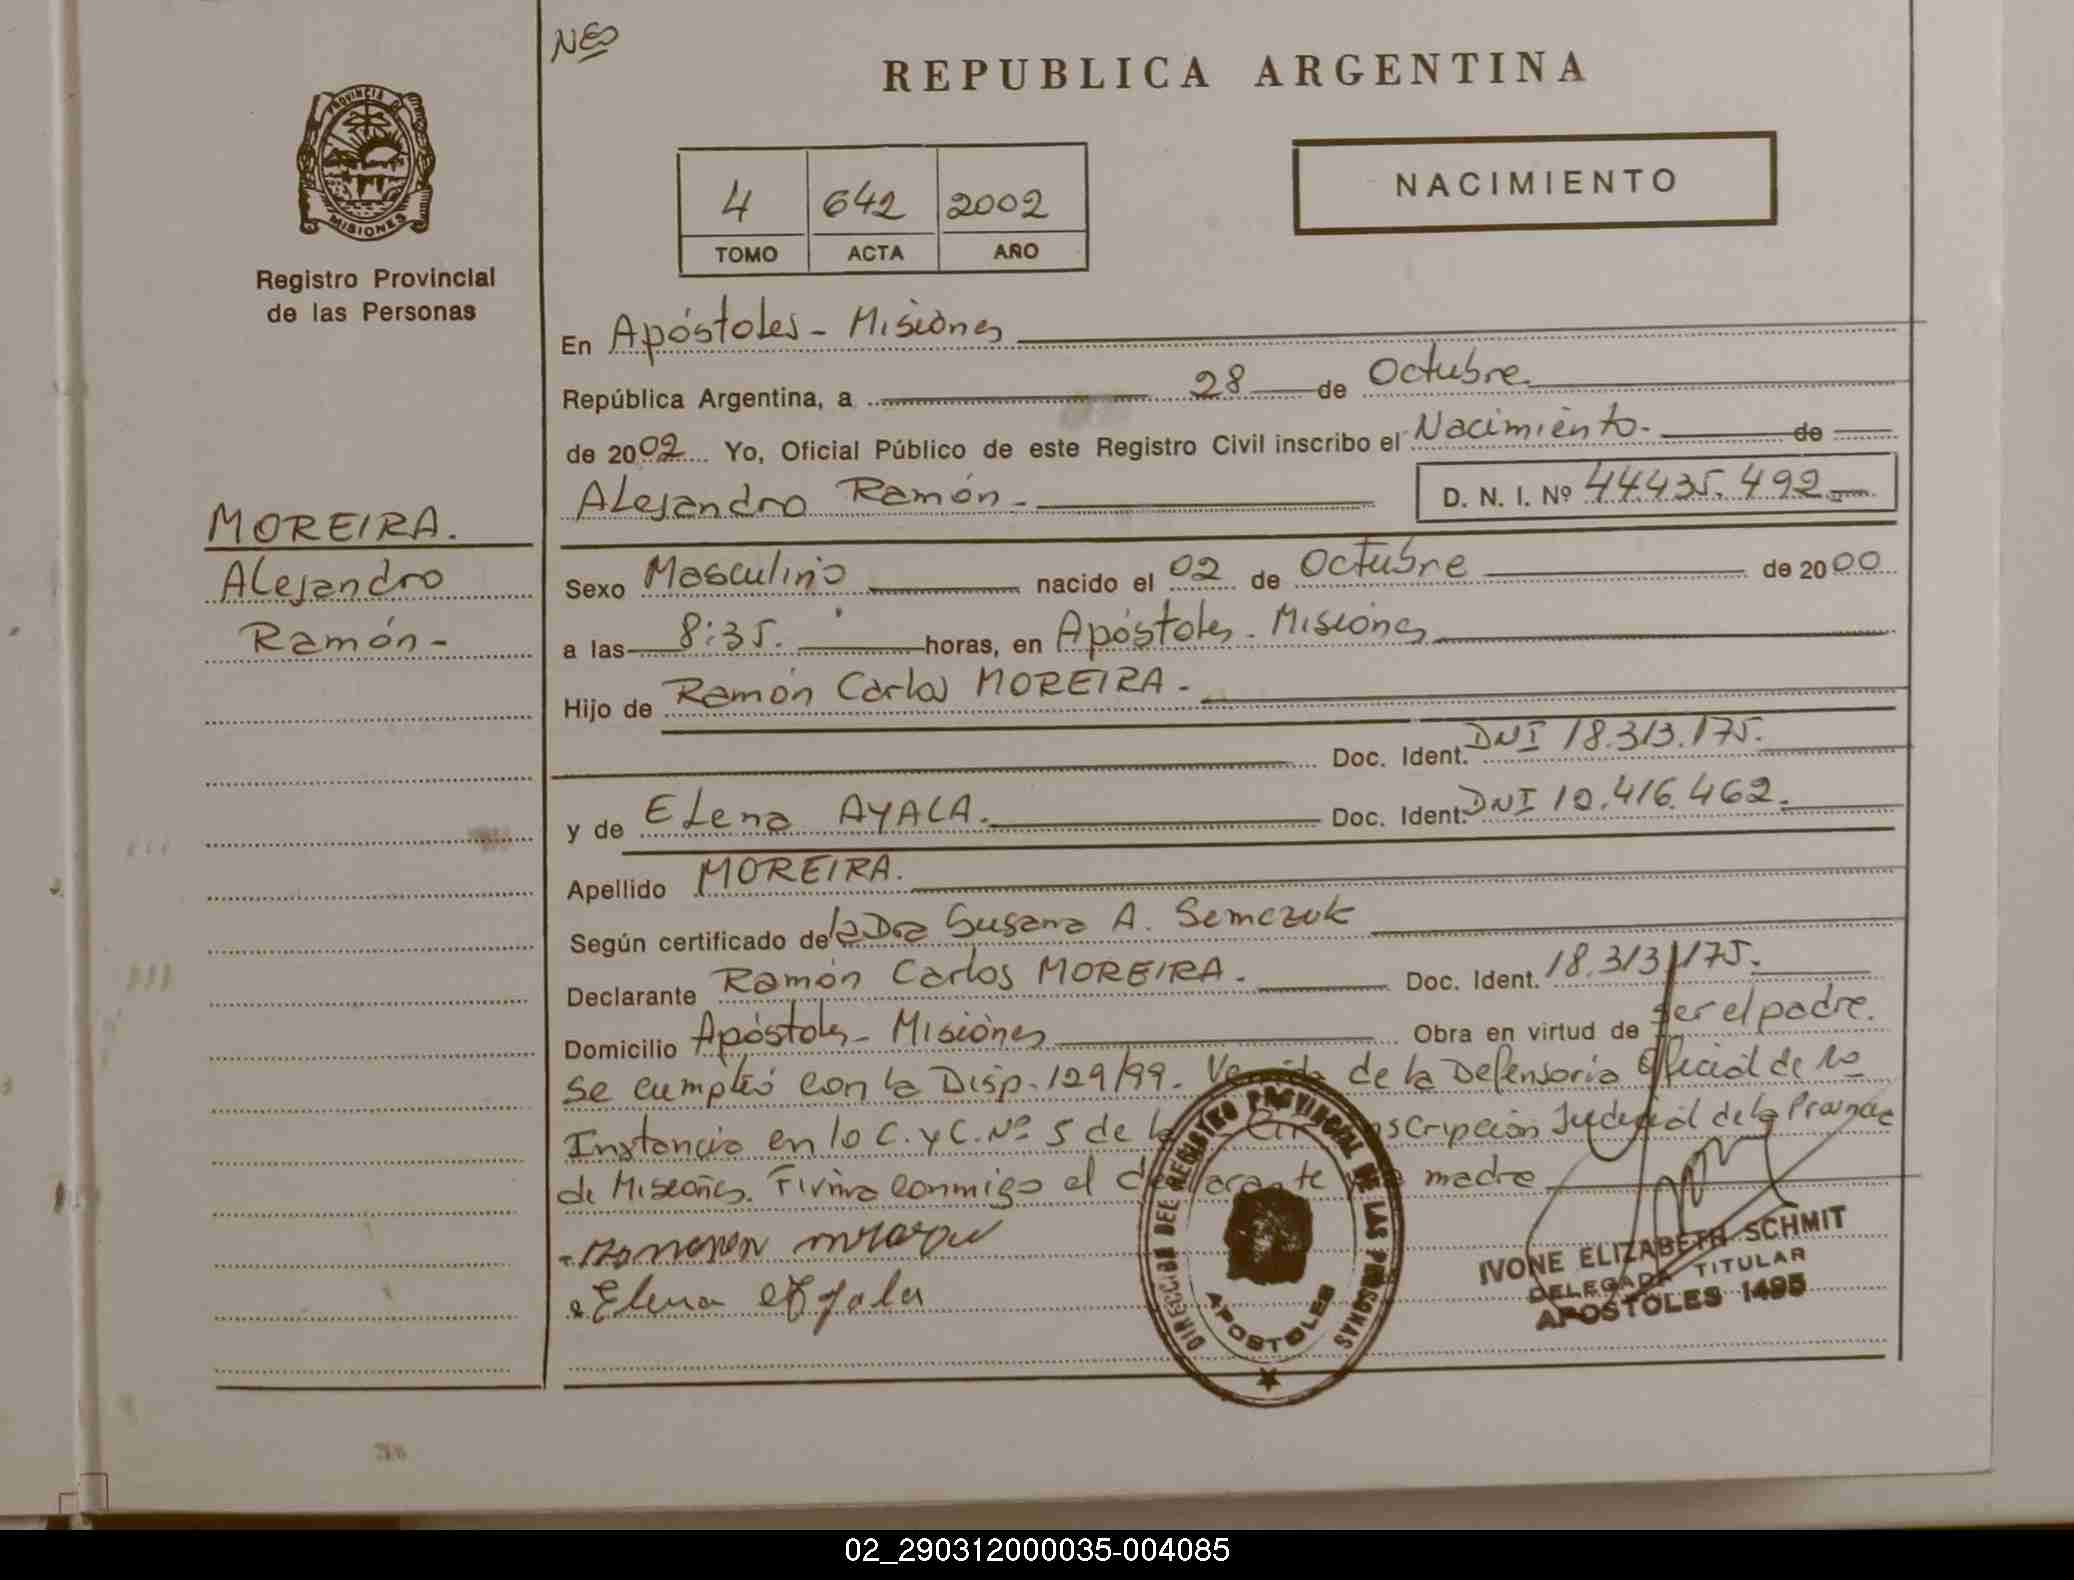 NES
REPUBLICA ARGENTINA
PROVINCIA DE
MISIONES
Registro Provincial
de las Personas
4 642 2002
TOMO ACTA AÑO
NACIMIENTO
En Apóstoles - Misiones
República Argentina, a 28 de Octubre
de 2002 Yo, Oficial Público de este Registro Civil inscribo el Nacimiento. de
Alejandro Ramón - D. N. I. Nº 44.435.492
MOREIRA.
Alejandro
Ramón -
Sexo Masculino nacido el 02 de Octubre de 2000
a las 8:35. horas, en Apóstoles - Misiones
Hijo de Ramón Carlos MOREIRA -
Doc. Ident. DNI 18.313.175.
y de Elena AYALA. Doc. Ident. DNI 10.416.462.
Apellido MOREIRA.
Según certificado de la Dra Susana A. Semczuk
Declarante Ramón Carlos MOREIRA. Doc. Ident. 18.313.175.
Domicilio Apóstoles - Misiones Obra en virtud de ser el padre.
Se cumplió con la Disp. 129/99. de la Defensoría Oficial de 1º
Instancia en lo C. y C. Nº 5 de la Judicial de la Provincia
de Misiones. Firma conmigo el declarante madre
Elena Ayala
DIRECCION DEL REGISTRO PROVINCIAL DE LAS PERSONAS
APOSTOLES
IVONE ELIZABETH SCHMIT
DELEGADA TITULAR
APOSTOLES 1495
02_290312000035-004085